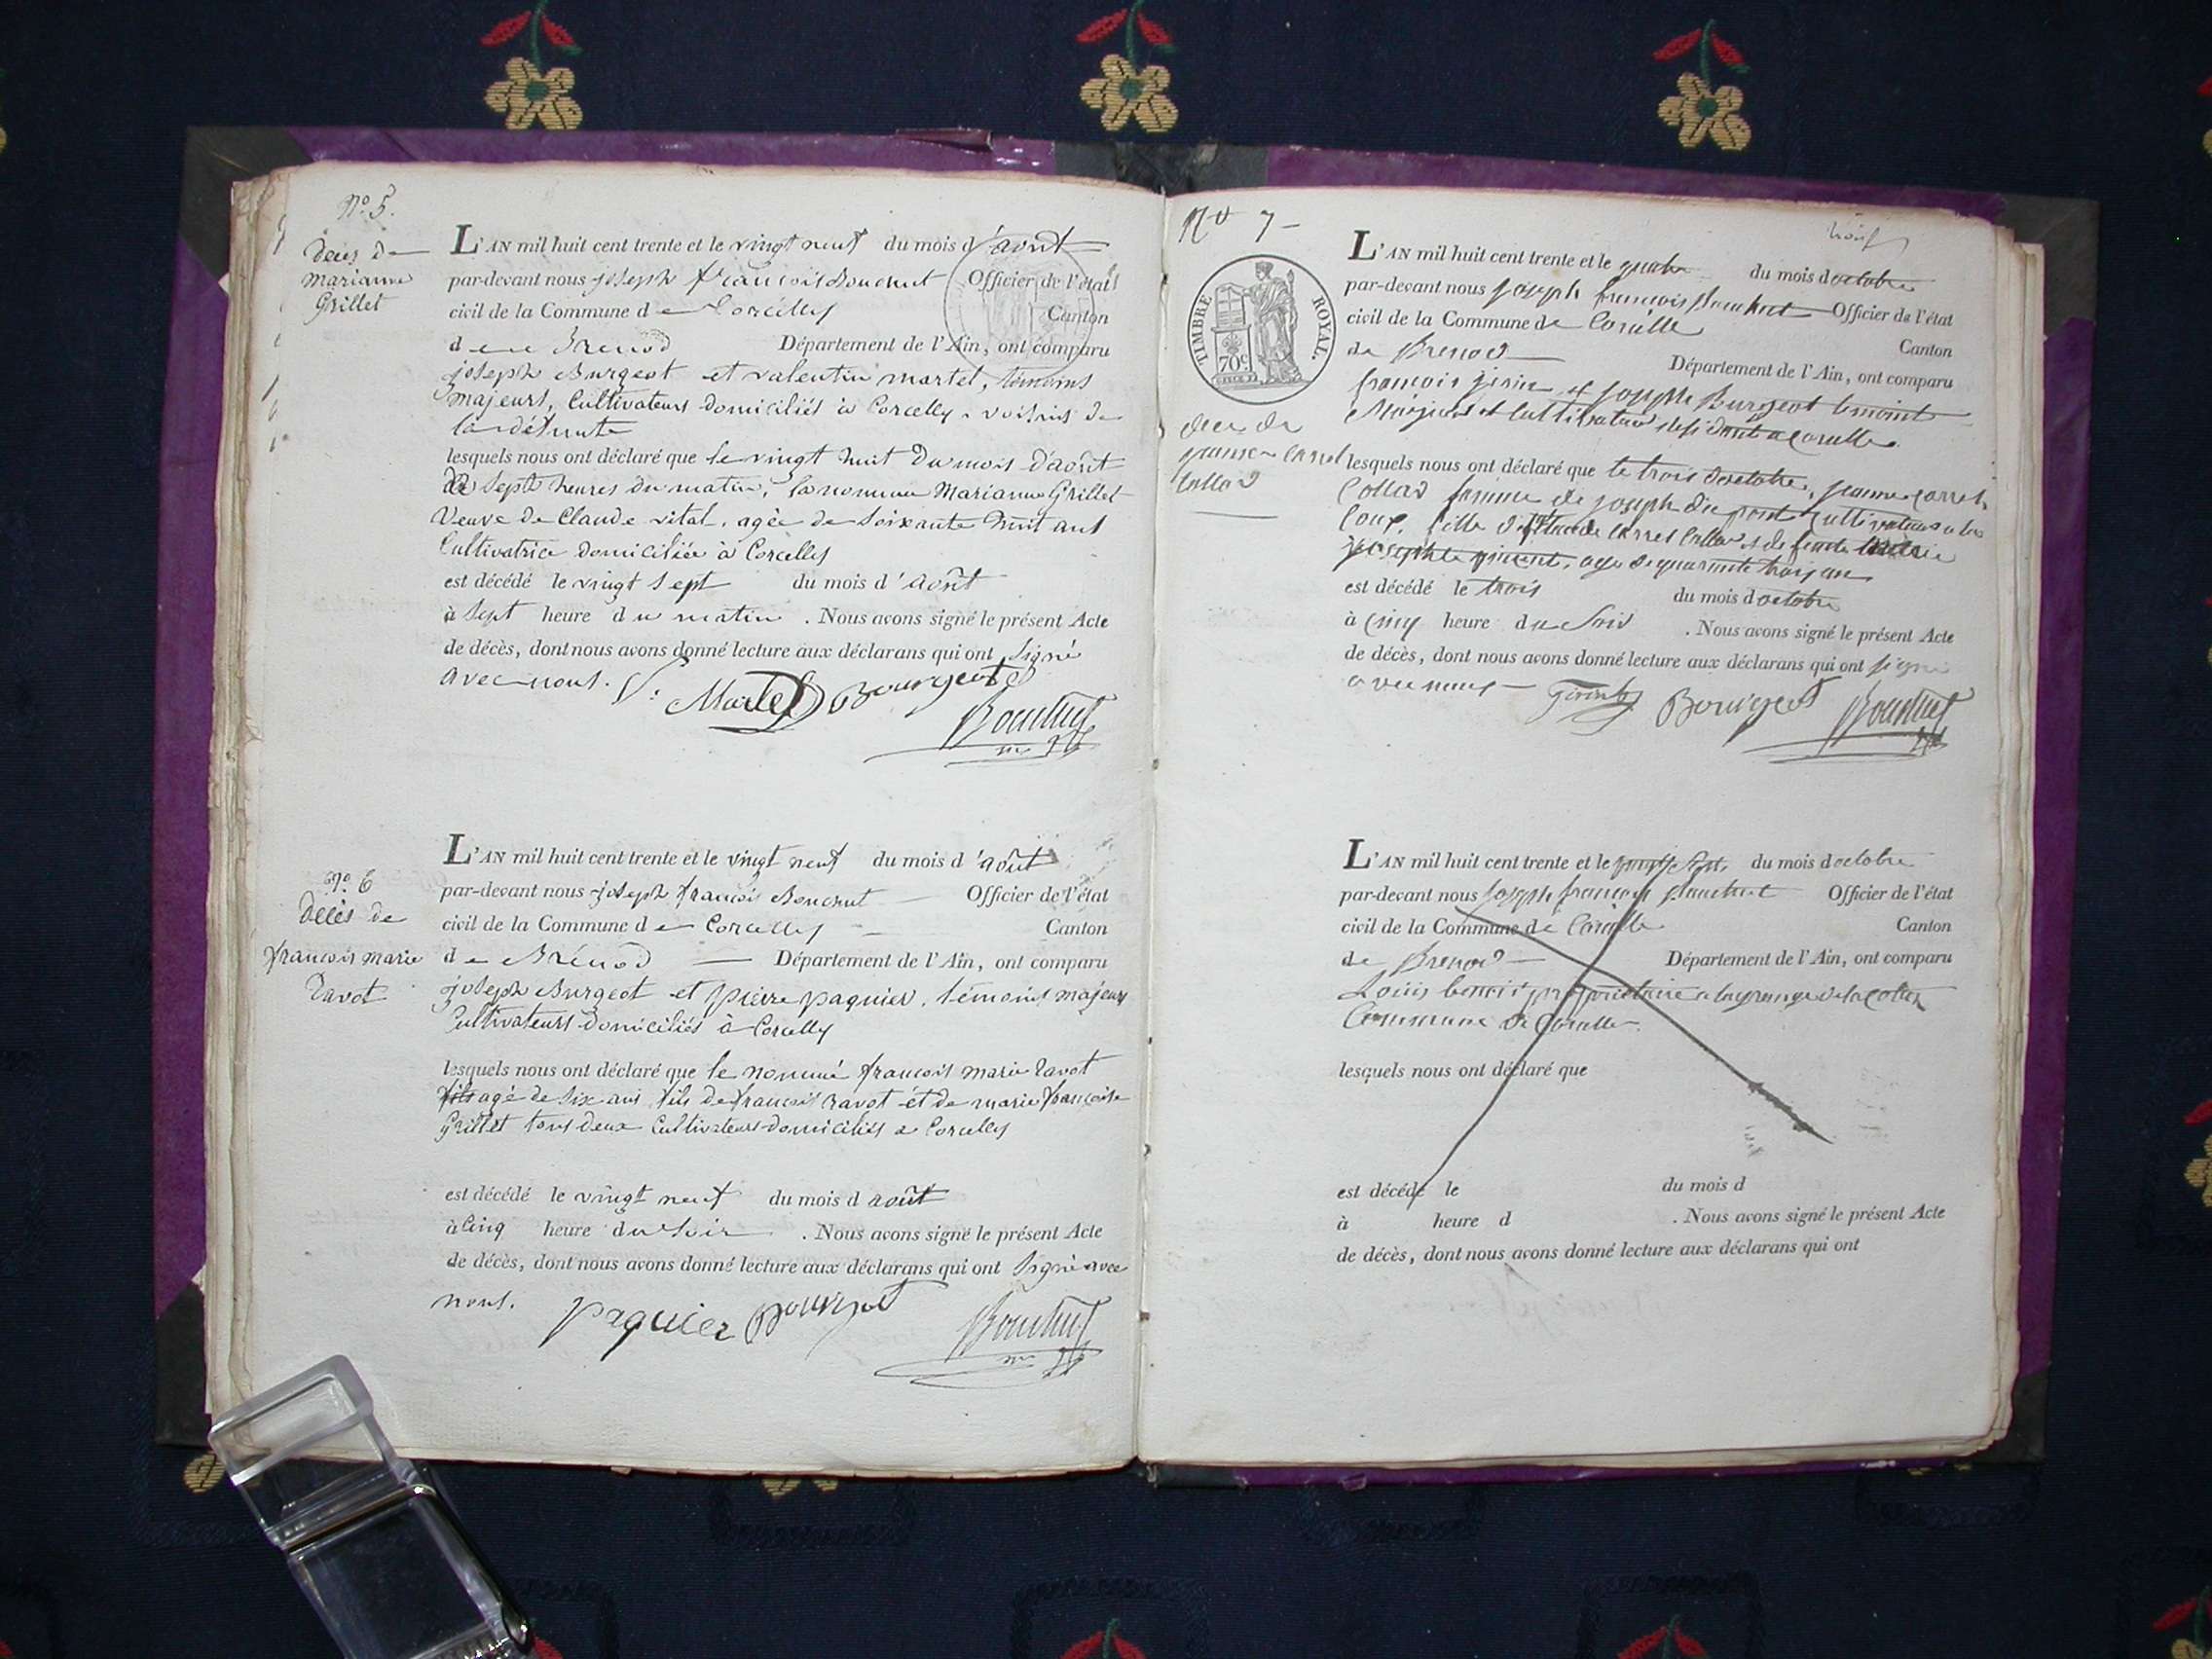 No. 5.
décès de
marianne
Grillet
L'AN mil huit cent trente et le vingt neuf du mois d'août
par-devant nous joseph françois Bouchut Officier de l'état
civil de la Commune de Corcelly Canton
de Brenod Département de l'Ain, ont comparu
joseph Burgeot et valentin martel, témoins
majeurs, Cultivateurs domiciliés à Corcelly voisins de
la défunte
lesquels nous ont déclaré que le vingt huit du mois d'août
à Sept heures du matin, la nommée Marianne Grillet
Veuve de Claude vital, agée de soixante huit ans
Cultivatrice domiciliée à Corcelly
est décédé le vingt sept du mois d'août
à Sept heure du matin . Nous avons signé le présent Acte
de décès, dont nous avons donné lecture aux déclarans qui ont signé
avec nous. Martel Bourgeot
Bouchut
No. 6
Décès de
françois marie
Ravot
L'AN mil huit cent trente et le vingt neuf du mois d'août
par-devant nous joseph françois Bouchut Officier de l'état
civil de la Commune de Corcelly Canton
de Brénod Département de l'Ain, ont comparu
joseph Burgeot et pierre paquier, témoins majeurs
Cultivateurs domiciliés à Corcelly
lesquels nous ont déclaré que le nommé françois marie Ravot
fils agé de six ans fils de françois Ravot et de marie françoise
Grillet tous deux Cultivateurs domiciliés a Corcelly
est décédé le vingt neuf du mois d août
à cinq heure du soir . Nous avons signé le présent Acte
de décès, dont nous avons donné lecture aux déclarans qui ont signé avec
nous. paquier Bourgeot Bouchut
No 7
TIMBRE ROYAL.
70c
L'AN mil huit cent trente et le quatre du mois d octobre
par-devant nous joseph françois Bouchut Officier de l'état
civil de la Commune de Corcelle Canton
de Brenod Département de l'Ain, ont comparu
françois et joseph Burgeot temoins
Majeurs et Cultivateurs a Corcelle
deces de
jeanne Carrel
Collad
lesquels nous ont déclaré que le trois d octobre, jeanne Carrel
Collad femme de joseph
fille de Claude Carrel Collad et de
josephte age de quarante trois ans
est décédé le trois du mois d octobre
à cinq heure du Soir . Nous avons signé le présent Acte
de décès, dont nous avons donné lecture aux déclarans qui ont signé
avec nous Bourgeot Bouchut
L'AN mil huit cent trente et le du mois d octobre
par-devant nous joseph françois Bouchut Officier de l'état
civil de la Commune de Corcelle Canton
de Brenod Département de l'Ain, ont comparu
Louis benoit propriétaire a la grange
Commune de Corcelle
lesquels nous ont déclaré que
est décédé le du mois d
à heure d . Nous avons signé le présent Acte
de décès, dont nous avons donné lecture aux déclarans qui ont